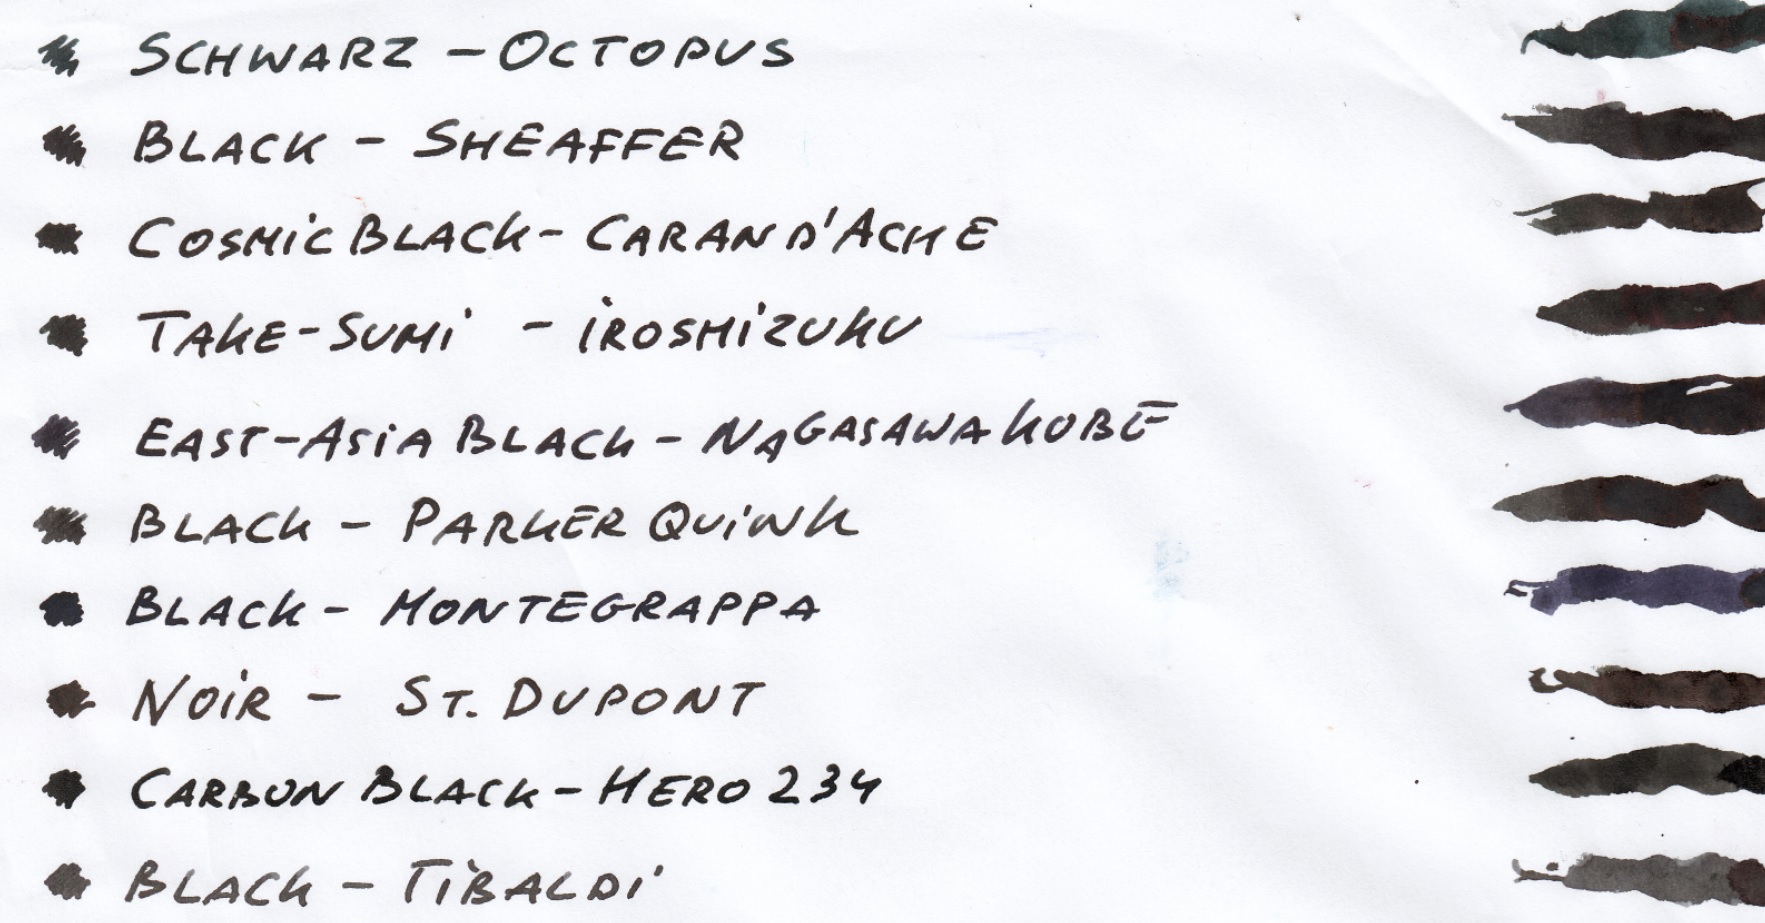 SCHWARZ - OCTOPUS
BLACK - SHEAFFER
COSMIC BLACK - CARAN D'ACHE
TAKE-SUMI - IROSHIZUKU
EAST-ASIA BLACK - NAGASAWA KOBE
BLACK - PARKER QUINK
BLACK - MONTEGRAPPA
NOIR - ST. DUPONT
CARBON BLACK - HERO 234
BLACK - TIBALDI